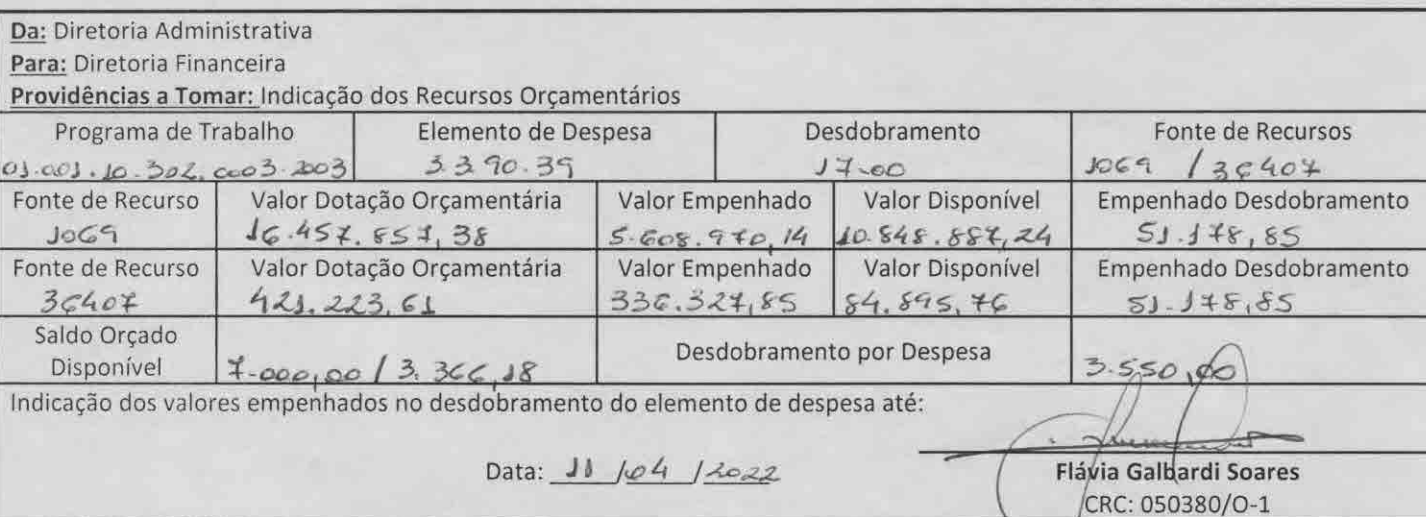 Da: Diretoria Administrativa
Para: Diretoria Financeira
Providências a Tomar: Indicação dos Recursos Orçamentários
Programa de Trabalho Elemento de Despesa Desdobramento Fonte de Recursos
01.001.10.302.0003.2003 3.3.90.39 17.00 1069 / 36407
Fonte de Recurso Valor Dotação Orçamentária Valor Empenhado Valor Disponível Empenhado Desdobramento
1069 16.457.857,38 5.608.970,14 10.848.887,24 51.178,85
Fonte de Recurso Valor Dotação Orçamentária Valor Empenhado Valor Disponível Empenhado Desdobramento
36407 421.223,61 336.327,85 84.895,76 51.178,85
Saldo Orçado
Disponível 7.000,00 / 3.366,18 Desdobramento por Despesa 3.550,00
Indicação dos valores empenhados no desdobramento do elemento de despesa até:
Data: 11 /04 /2022
Flávia Galbardi Soares
CRC: 050380/O-1